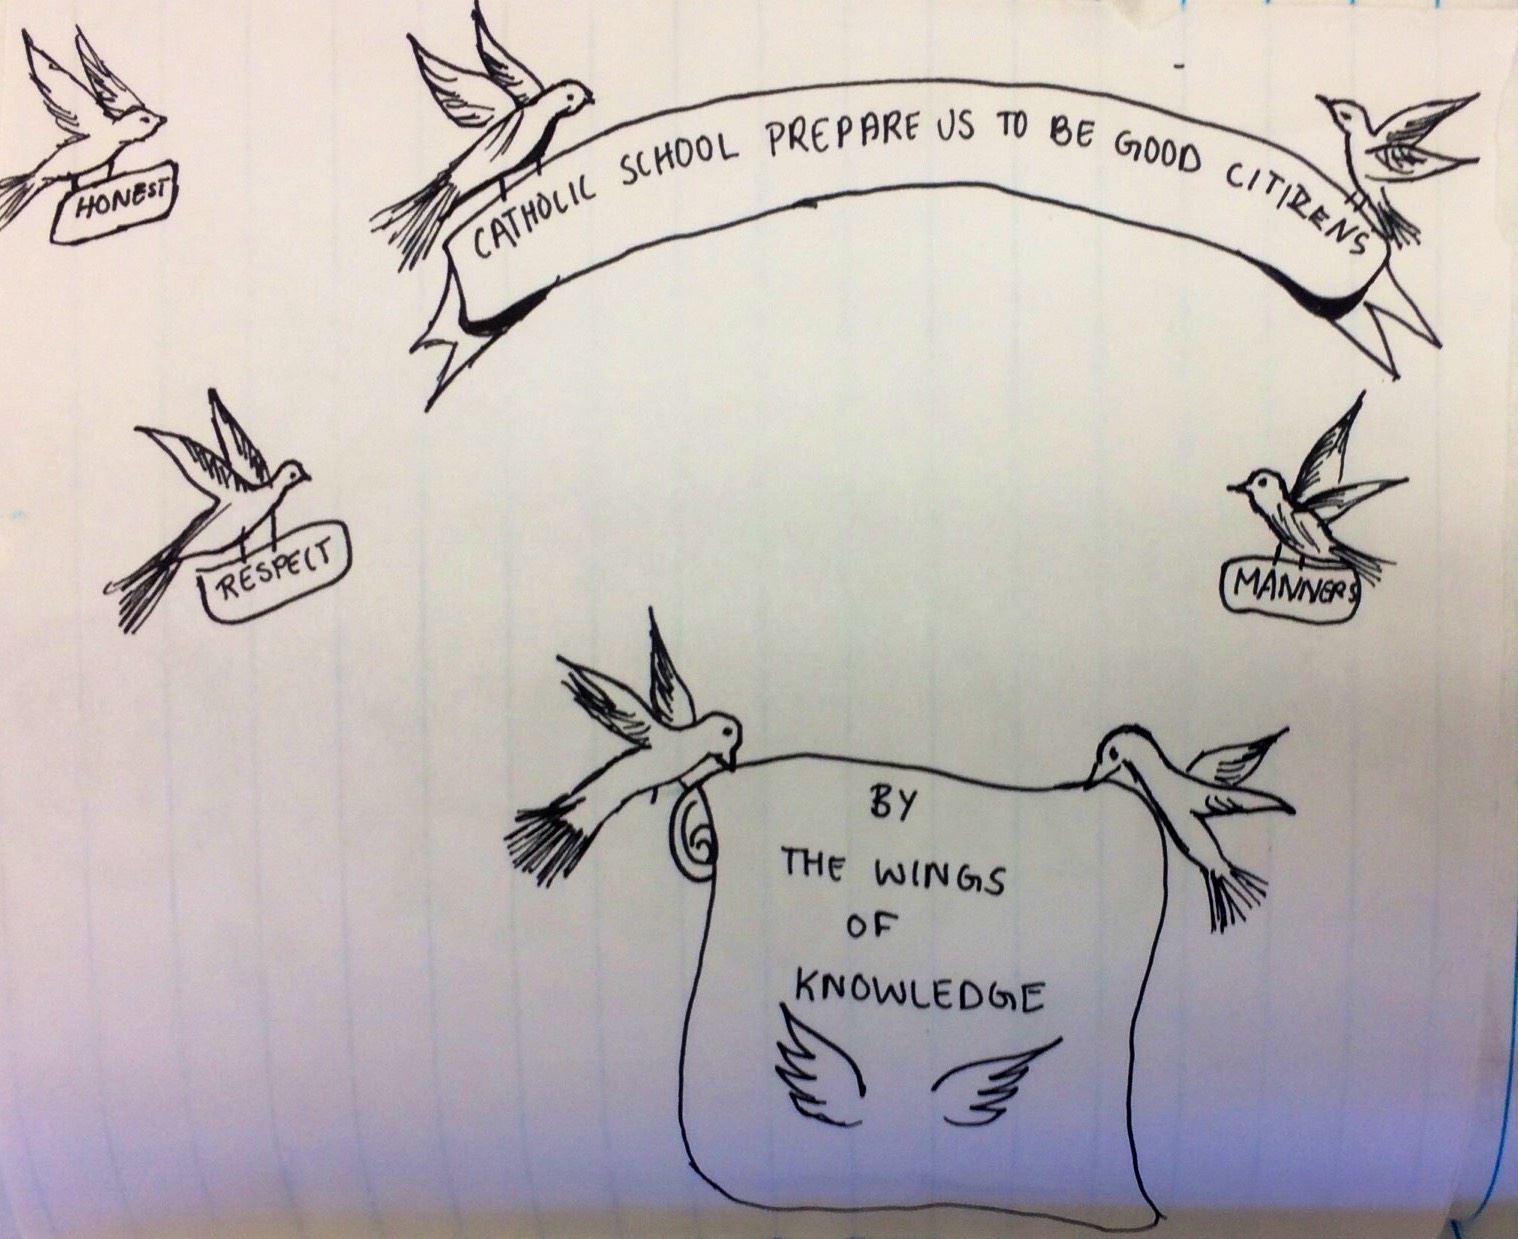 HONEST
CATHOLIC SCHOOL PREPARE US TO BE GOOD CITIZENS
RESPECT
MANNERS
BY
THE WINGS
OF
KNOWLEDGE